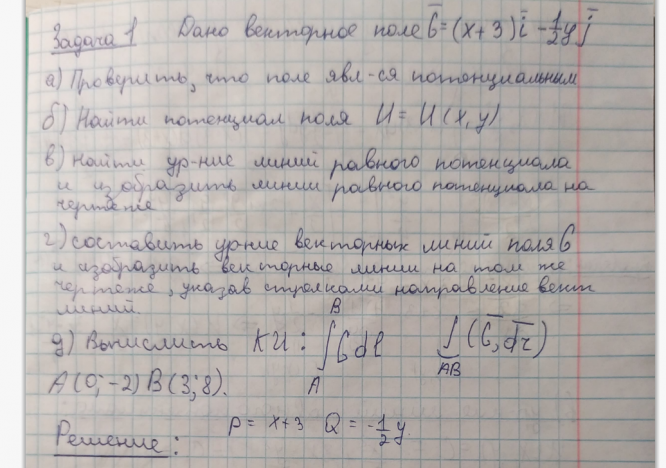 Задача 1 Дано векторное поле G̅=(x+3)i̅ -½y j̅
а) Проверить, что поле явл-ся потенциальным
б) Найти потенциал поля U= U(x,y)
в) Найти ур-ние линий равного потенциала
и изобразить линии равного потенциала на
чертеже
г) составить ур-ние векторных линий поля G
и изобразить векторные линии на том же
чертеже, указав стрелками направление вект
линий.
д) Вычислить КИ: ∫_A^B G dl ∫_AB (G̅, dr̅)
A(0;-2) B(3;8).
Решение: P= x+3 Q= -½y.